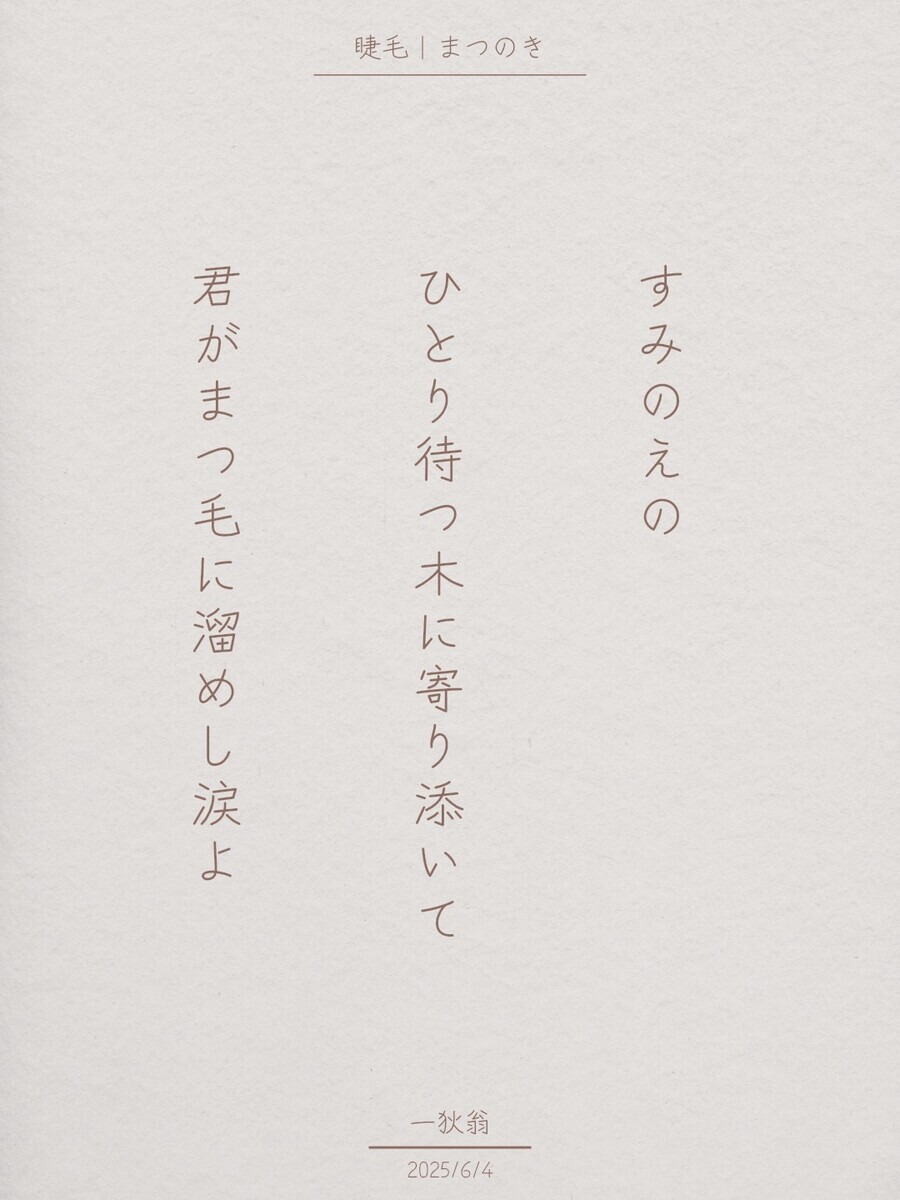 睫毛｜まつのき
すみのえの
ひとり待つ木に寄り添いて
君がまつ毛に溜めし涙よ
一狄翁
2025/6/4